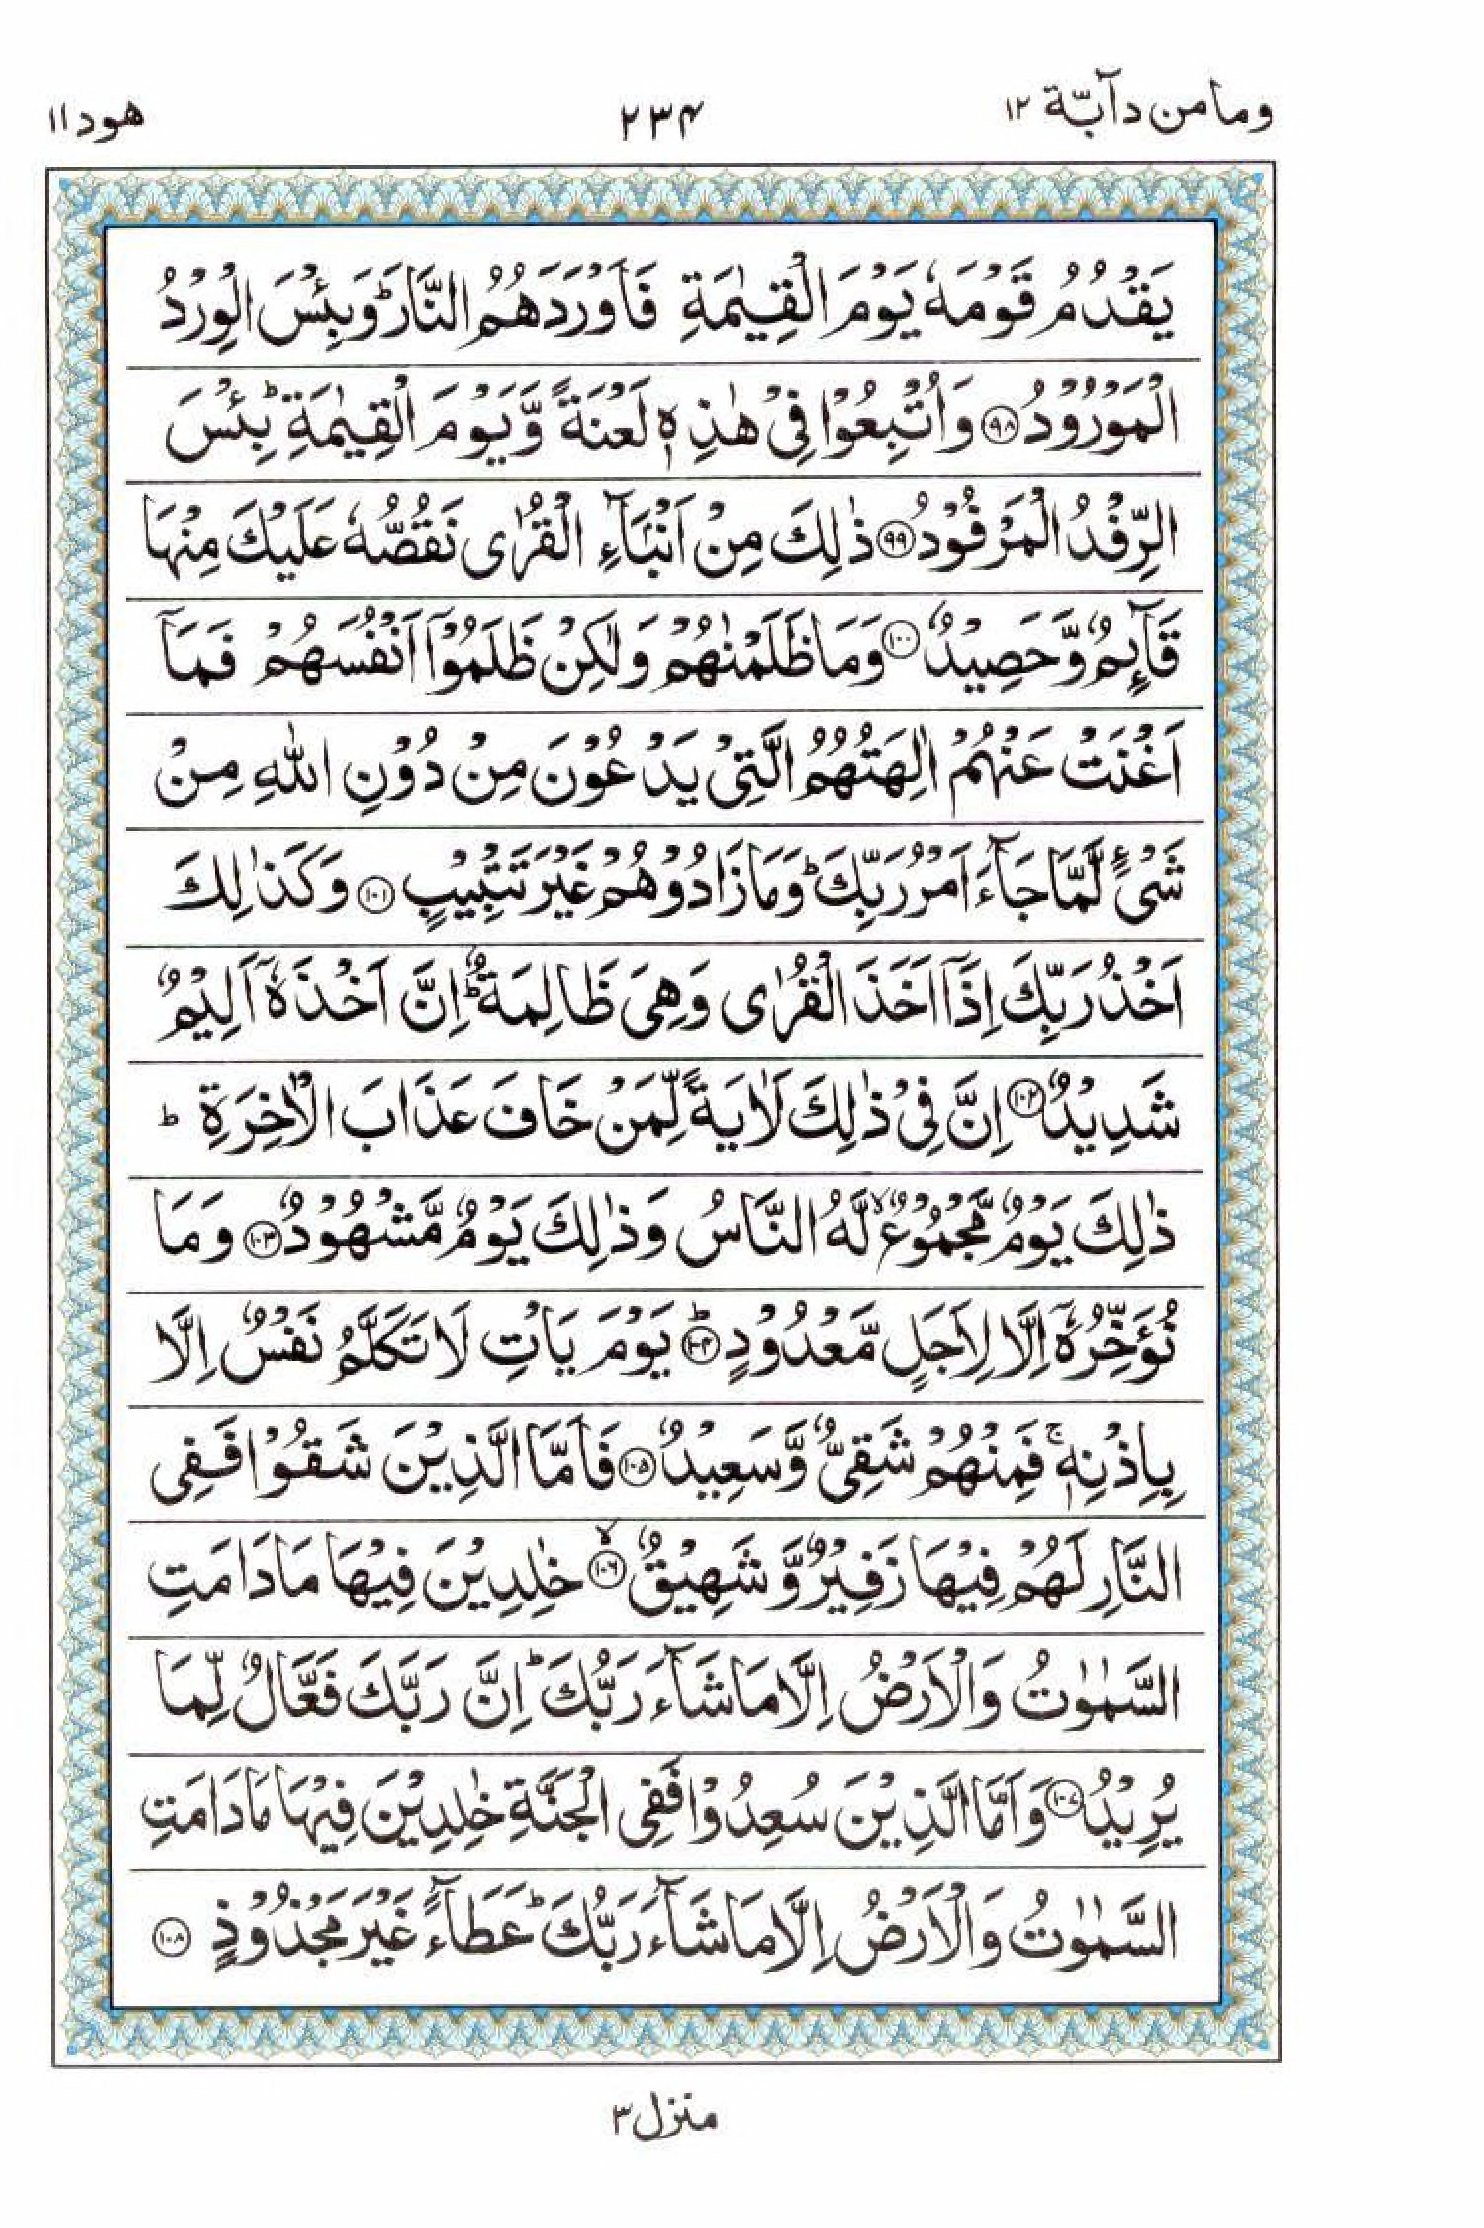 وما من دآبّة ۱۲
۲۳۴
هود ۱۱
يَقْدُمُ قَوْمَهٗ يَوْمَ الْقِيٰمَةِ فَاَوْرَدَهُمُ النَّارَ ؕ وَبِئْسَ الْوِرْدُ
الْمَوْرُوْدُ ﴿۹۸﴾ وَاُتْبِعُوْا فِيْ هٰذِهٖ لَعْنَةً وَّيَوْمَ الْقِيٰمَةِ ؕ بِئْسَ
الرِّفْدُ الْمَرْفُوْدُ ﴿۹۹﴾ ذٰلِكَ مِنْ اَنْۢبَآءِ الْقُرٰى نَقُصُّهٗ عَلَيْكَ مِنْهَا
قَآىِٕمٌ وَّحَصِيْدٌ ﴿۱۰۰﴾ وَمَا ظَلَمْنٰهُمْ وَلٰكِنْ ظَلَمُوْۤا اَنْفُسَهُمْ فَمَاۤ
اَغْنَتْ عَنْهُمْ اٰلِهَتُهُمُ الَّتِيْ يَدْعُوْنَ مِنْ دُوْنِ اللّٰهِ مِنْ
شَيْءٍ لَّمَّا جَآءَ اَمْرُ رَبِّكَ ؕ وَمَا زَادُوْهُمْ غَيْرَ تَتْبِيْبٍ ﴿۱۰۱﴾ وَكَذٰلِكَ
اَخْذُ رَبِّكَ اِذَاۤ اَخَذَ الْقُرٰى وَهِيَ ظَالِمَةٌ ؕ اِنَّ اَخْذَهٗۤ اَلِيْمٌ
شَدِيْدٌ ﴿۱۰۲﴾ اِنَّ فِيْ ذٰلِكَ لَاٰيَةً لِّمَنْ خَافَ عَذَابَ الْاٰخِرَةِ ؕ
ذٰلِكَ يَوْمٌ مَّجْمُوْعٌ ۙ لَّهُ النَّاسُ وَذٰلِكَ يَوْمٌ مَّشْهُوْدٌ ﴿۱۰۳﴾ وَمَا
نُؤَخِّرُهٗۤ اِلَّا لِاَجَلٍ مَّعْدُوْدٍ ﴿۱۰۴﴾ؕ يَوْمَ يَاْتِ لَا تَكَلَّمُ نَفْسٌ اِلَّا
بِاِذْنِهٖ ۚ فَمِنْهُمْ شَقِيٌّ وَّسَعِيْدٌ ﴿۱۰۵﴾ فَاَمَّا الَّذِيْنَ شَقُوْا فَفِى
النَّارِ لَهُمْ فِيْهَا زَفِيْرٌ وَّشَهِيْقٌ ﴿۱۰۶﴾ۙ خٰلِدِيْنَ فِيْهَا مَا دَامَتِ
السَّمٰوٰتُ وَالْاَرْضُ اِلَّا مَا شَآءَ رَبُّكَ ؕ اِنَّ رَبَّكَ فَعَّالٌ لِّمَا
يُرِيْدُ ﴿۱۰۷﴾ وَاَمَّا الَّذِيْنَ سُعِدُوْا فَفِى الْجَنَّةِ خٰلِدِيْنَ فِيْهَا مَا دَامَتِ
السَّمٰوٰتُ وَالْاَرْضُ اِلَّا مَا شَآءَ رَبُّكَ ؕ عَطَآءً غَيْرَ مَجْذُوْذٍ ﴿۱۰۸﴾
منزل ۳